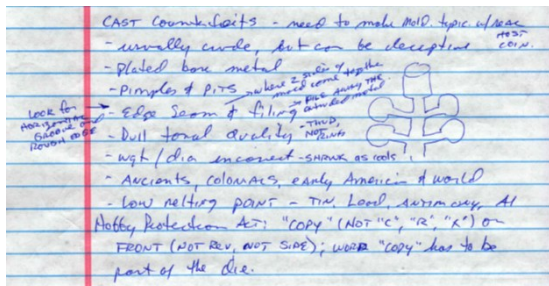 CAST Counterfeits - need to make mold. typic w/ real HOST COIN.
- usually crude, but can be deceptive
- plated base metal
- Pimples & Pits
where 2 sides of mold come together
- Edge Seam & filing
→ FILE AWAY THE extruded metal
Look for HORIZONTAL GROOVE and ROUGH EDGE
- Dull tonal quality - THUD, NOT RING
- wgt/dia incorrect - SHRINK as cools
- Ancients, colonials, early American & world
- Low melting point - TIN, Lead, Antimony, Al
Hobby Protection Act: "COPY" (NOT "C", "R", "X") on
FRONT (NOT REV, NOT SIDE); WORD "COPY" has to be
part of the die.